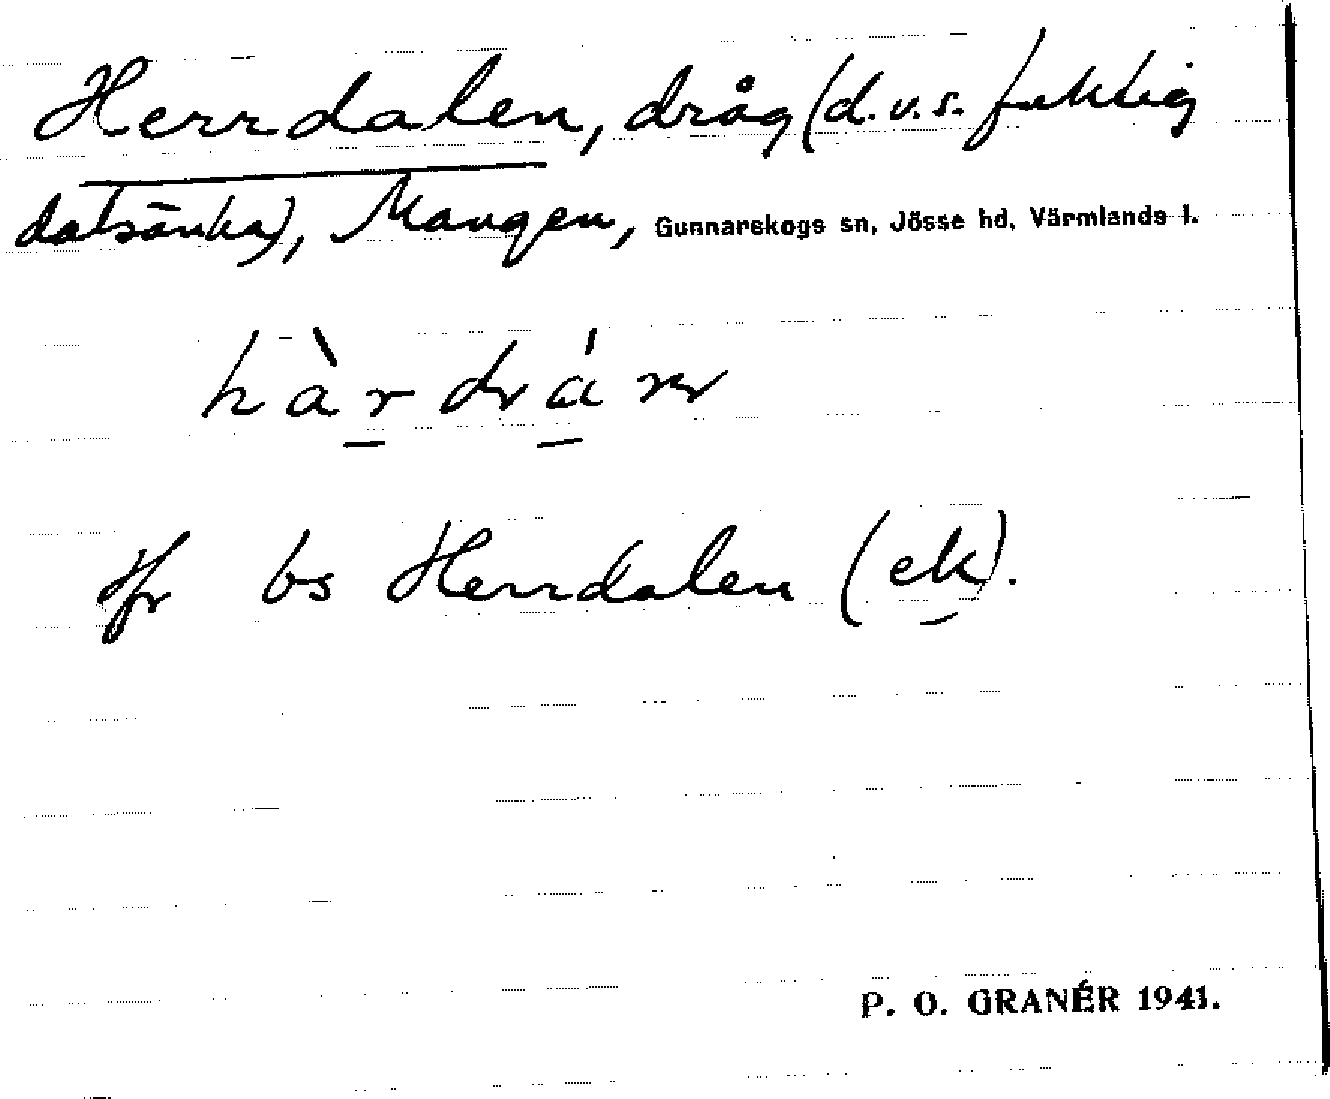 Herrdalen, dråg (d.v.s. fuktig
dalsänka), Mangen, Gunnarskogs sn, Jösse hd, Värmlands l.
Jfr bs Herrdalen (ek).
P. O. GRANÉR 1941.